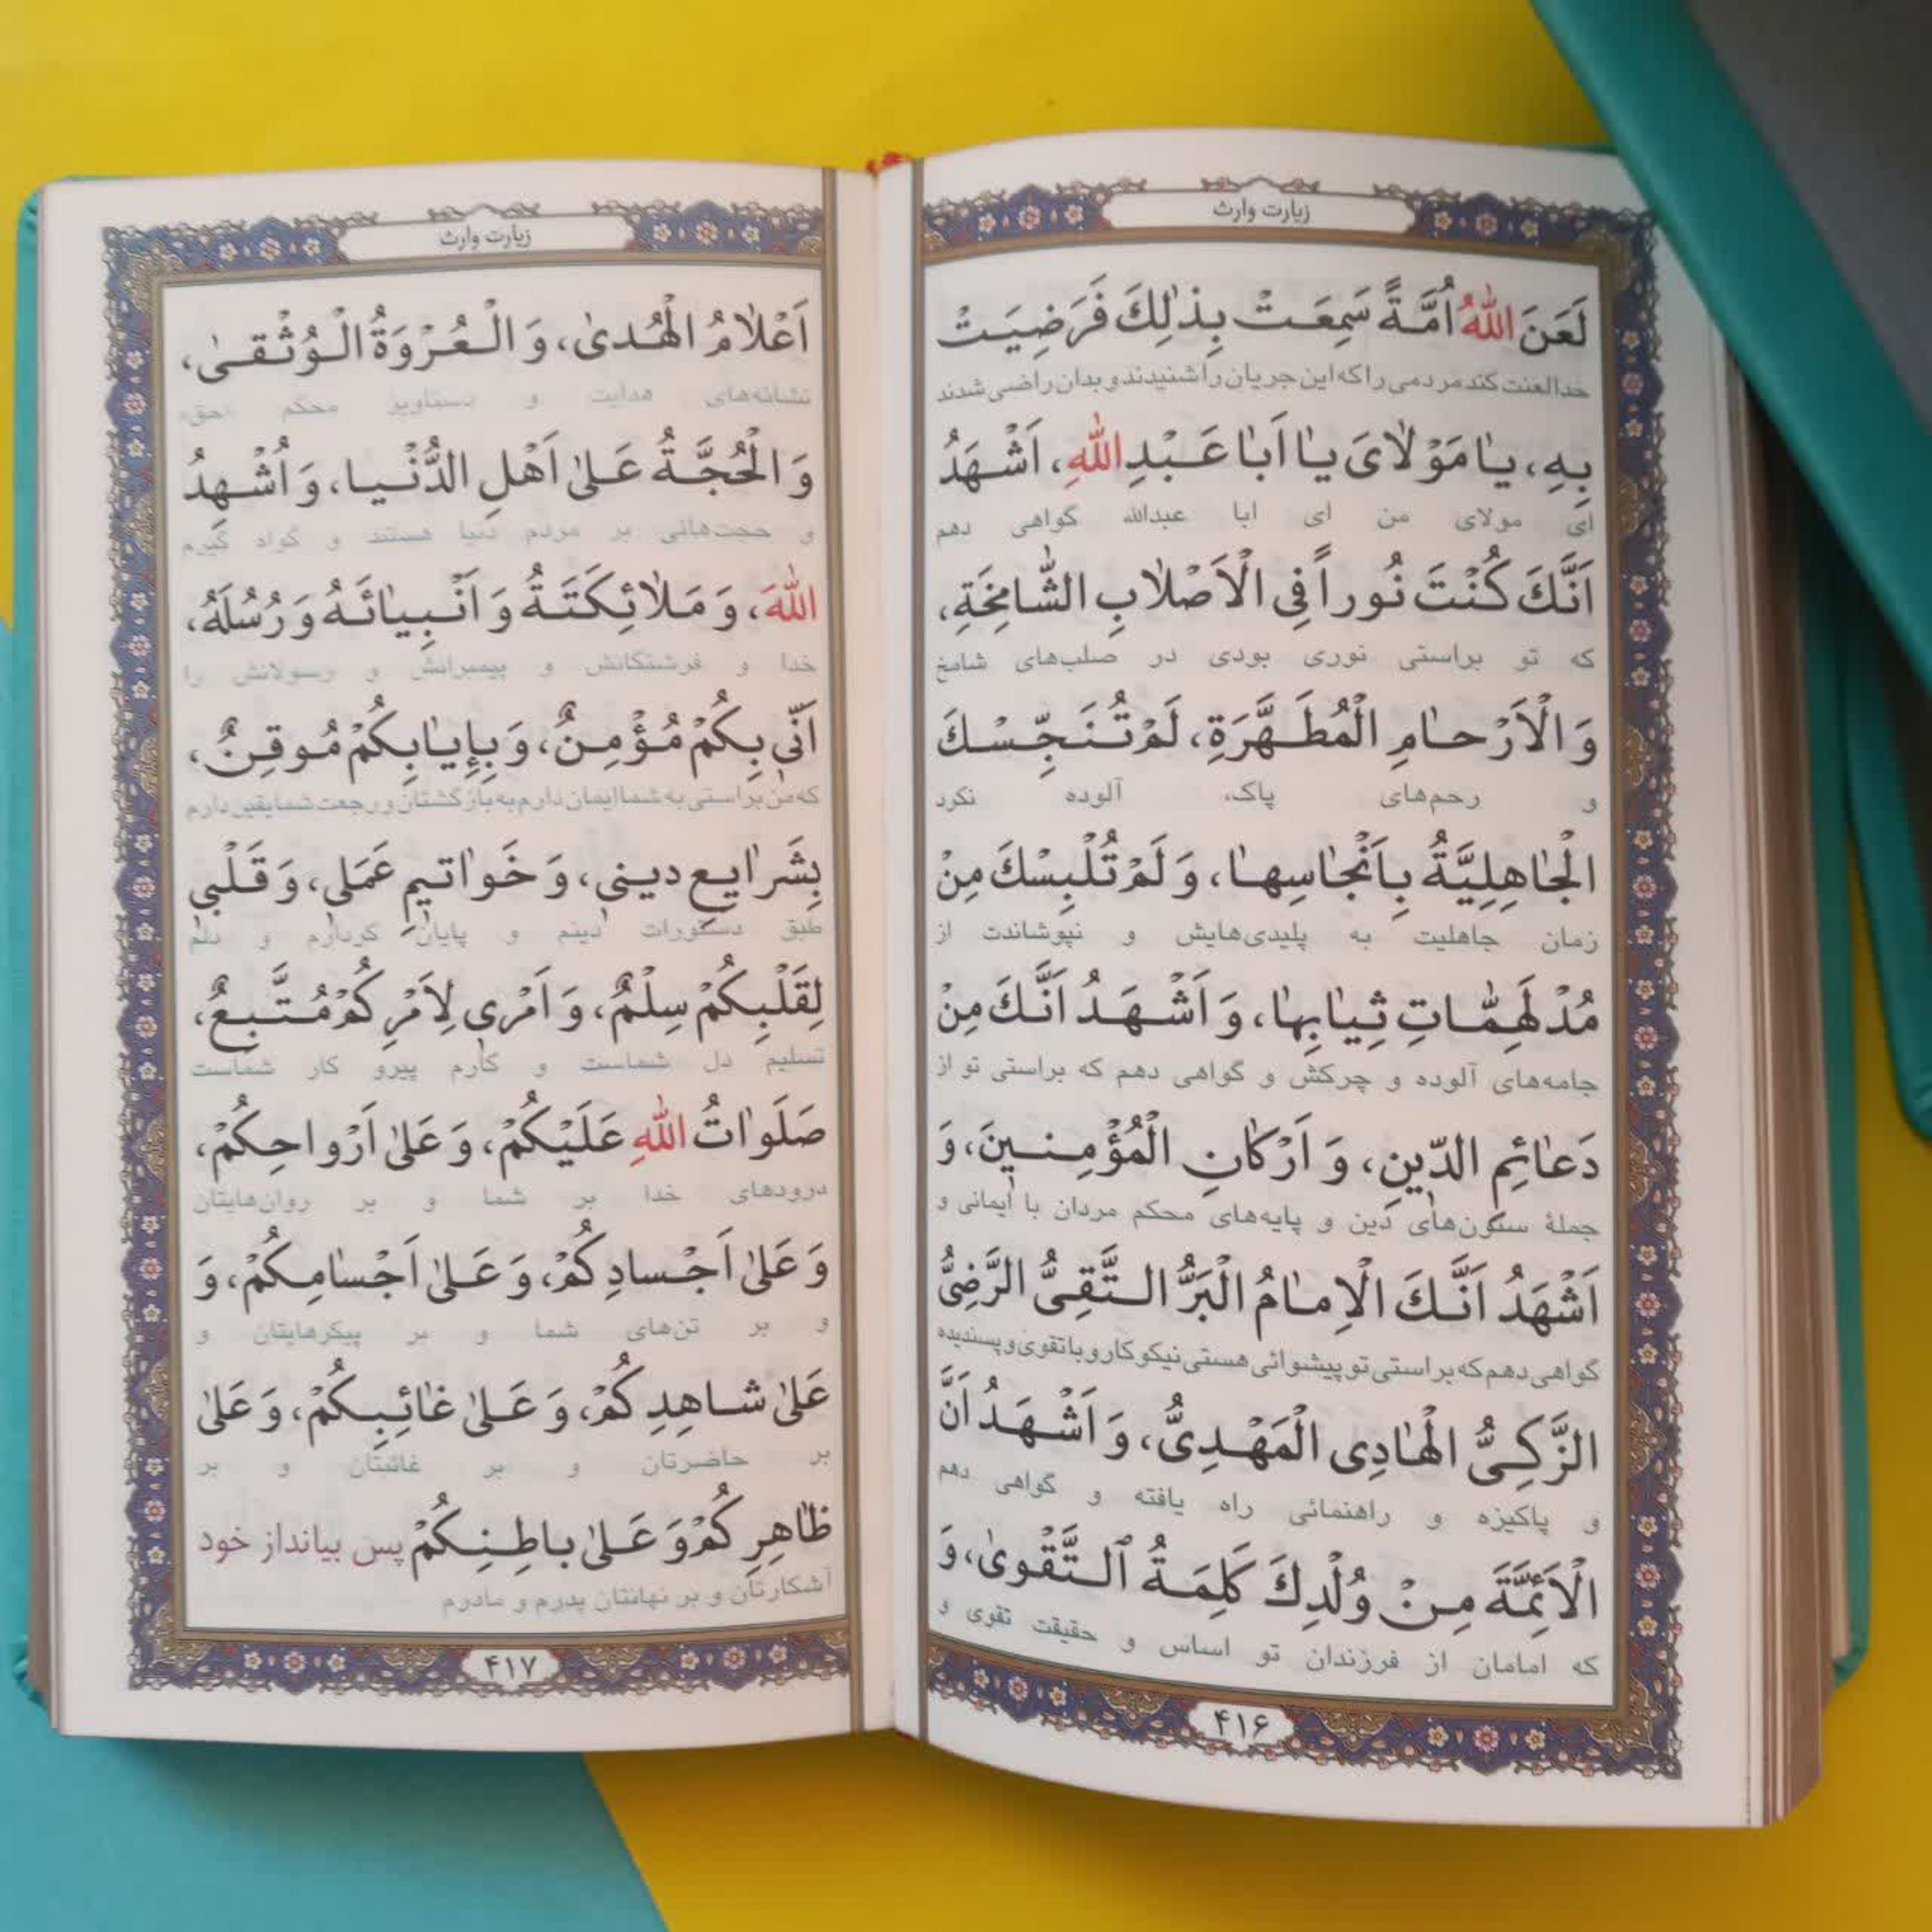 زیارت وارث
لَعَنَ اللهُ اُمَّةً سَمِعَتْ بِذٰلِكَ فَرَضِيَتْ
خدا لعنت کند مردمی را که این جریان را شنیدند و بدان راضی شدند
بِهِ، يٰا مَوْلاٰىَ يٰا اَبٰا عَبْدِ اللهِ، اَشْهَدُ
ای مولای من ای ابا عبدالله گواهی دهم
اَنَّكَ كُنْتَ نُوراً فِى الْاَصْلاٰبِ الشّٰامِخَةِ،
که تو براستی نوری بودی در صلب‌های شامخ
وَ الْاَرْحٰامِ الْمُطَهَّرَةِ، لَمْ تُنَجِّسْكَ
و رحم‌های پاک، آلوده نکرد
الْجٰاهِلِيَّةُ بِاَنْجٰاسِهٰا، وَ لَمْ تُلْبِسْكَ مِنْ
زمان جاهلیت به پلیدی‌هایش و نپوشاندت از
مُدْلَهِمّٰاتِ ثِيٰابِهٰا، وَ اَشْهَدُ اَنَّكَ مِنْ
جامه‌های آلوده و چرکش و گواهی دهم که براستی تو از
دَعٰائِمِ الدّينِ، وَ اَرْكٰانِ الْمُؤْمِنينَ، وَ
جملهٔ ستون‌های دین و پایه‌های محکم مردان با ایمانی و
اَشْهَدُ اَنَّكَ الْاِمٰامُ الْبَرُّ التَّقِىُّ الرَّضِىُّ
گواهی دهم که براستی تو پیشوائی هستی نیکوکار و باتقوی و پسندیده
الزَّكِىُّ الْهٰادِى الْمَهْدِىُّ، وَ اَشْهَدُ اَنَّ
و پاکیزه و راهنمائی راه یافته و گواهی دهم
الْاَئِمَّةَ مِنْ وُلْدِكَ كَلِمَةُ التَّقْوىٰ، وَ
که امامان از فرزندان تو اساس و حقیقت تقوی و
۴۱۶
زیارت وارث
اَعْلاٰمُ الْهُدىٰ، وَ الْعُرْوَةُ الْوُثْقىٰ،
نشانه‌های هدایت و دستاویز محکم حق،
وَ الْحُجَّةُ عَلىٰ اَهْلِ الدُّنْيا، وَ اُشْهِدُ
و حجت‌هائی بر مردم دنیا هستند و گواه گیرم
اللهَ، وَ مَلاٰئِكَتَهُ وَ اَنْبِيٰائَهُ وَ رُسُلَهُ،
خدا و فرشتگانش و پیمبرانش و رسولانش را
اَنّى بِكُمْ مُؤْمِنٌ، وَ بِاِيٰابِكُمْ مُوقِنٌ،
که من براستی به شما ایمان دارم به بازگشتتان و رجعت شما یقین دارم
بِشَرٰايِعِ دينى، وَ خَوٰاتيمِ عَمَلى، وَ قَلْبى
طبق دستورات دینم و پایان کردارم و دلم
لِقَلْبِكُمْ سِلْمٌ، وَ اَمْرى لِاَمْرِكُمْ مُتَّبِعٌ،
تسلیم دل شماست و کارم پیرو کار شماست
صَلَوٰاتُ اللهِ عَلَيْكُمْ، وَ عَلىٰ اَرْواحِكُمْ،
درودهای خدا بر شما و بر روان‌هایتان
وَ عَلىٰ اَجْسادِكُمْ، وَ عَلىٰ اَجْسٰامِكُمْ، وَ
و بر تن‌های شما و بر پیکرهایتان و
عَلىٰ شاهِدِكُمْ، وَ عَلىٰ غٰائِبِكُمْ، وَ عَلىٰ
بر حاضرتان و بر غائبتان و بر
ظٰاهِرِكُمْ وَ عَلىٰ باطِنِكُمْ پس بیانداز خود
آشکارتان و بر نهانتان پدرم و مادرم
۴۱۷